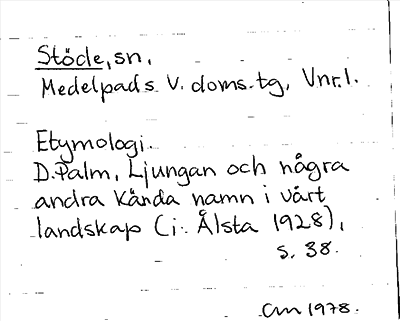 Stöde, sn.
Medelpads V. doms.tg, Vnrl.
Etymologi.
D. Palm, Ljungan och några
andra kända namn i vårt
landskap (i: Ålsta 1928),
s. 38.
CM 1978.